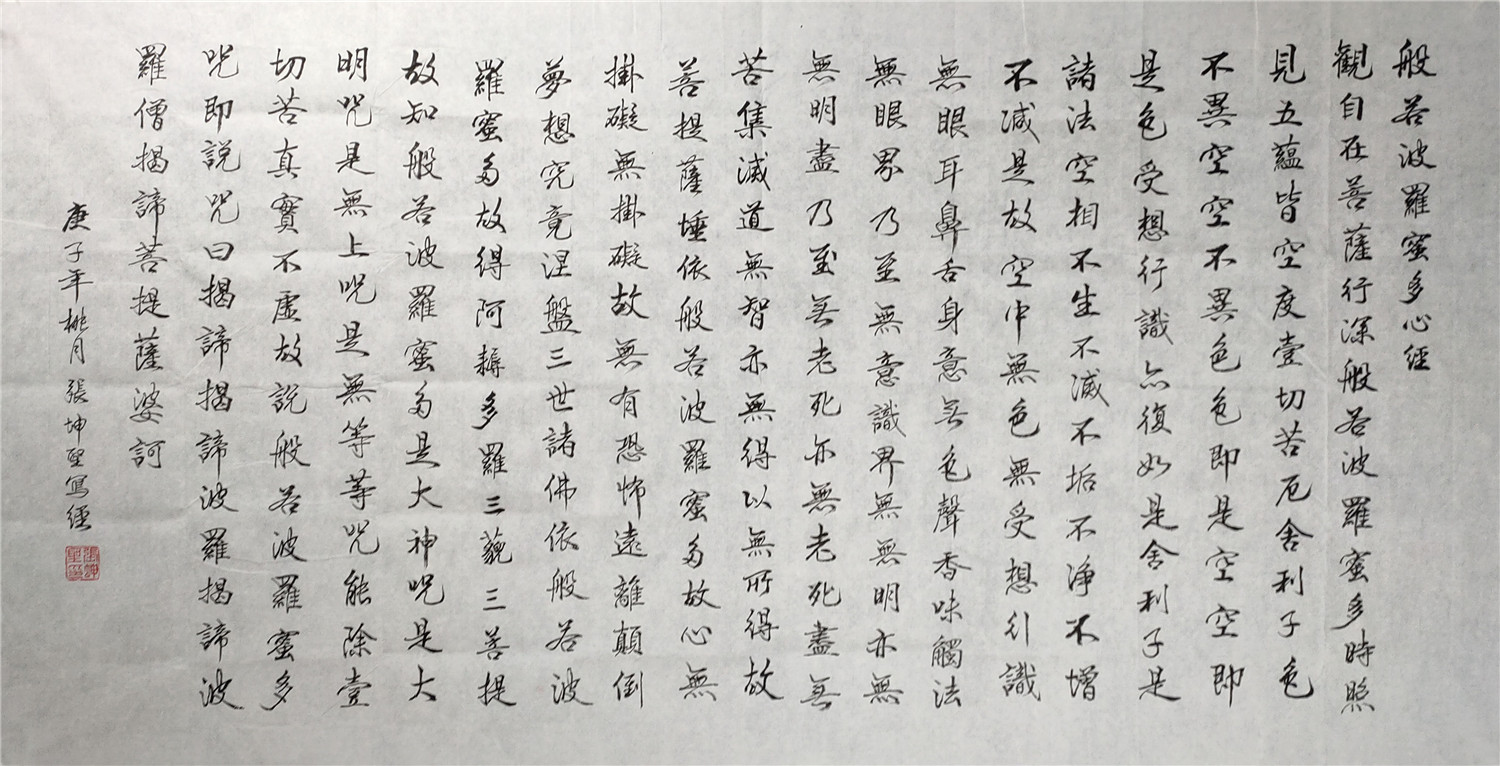 般若波羅蜜多心經
觀自在菩薩行深般若波羅蜜多時照
見五蘊皆空度壹切苦厄舍利子色
不異空空不異色色即是空空即
是色受想行識亦復如是舍利子是
諸法空相不生不滅不垢不净不增
不減是故空中無色無受想行識
無眼耳鼻舌身意无色聲香味觸法
無眼界乃至無意識界無無明亦無
無明盡乃至无老死亦無老死盡无
苦集滅道無智亦無得以無所得故
菩提薩埵依般若波羅蜜多故心無
掛礙無掛礙故無有恐怖遠離顛倒
夢想究竟涅盤三世諸佛依般若波
羅蜜多故得阿耨多羅三藐三菩提
故知般若波羅蜜多是大神咒是大
明咒是無上咒是無等等咒能除壹
切苦真實不虛故說般若波羅蜜多
咒即說咒曰揭諦揭諦波羅揭諦波
羅僧揭諦菩提薩婆訶
庚子年桃月張坤聖寫經